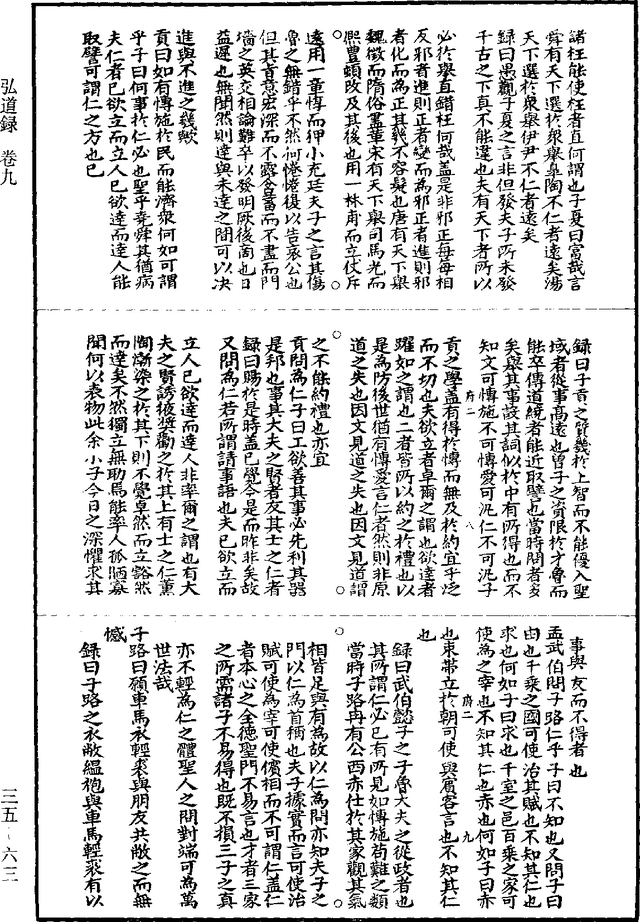 弘道録 卷九
諸枉能使枉者直何謂也子夏曰富哉言
舜有天下選於衆舉皋陶不仁者遠矣湯
天下選於衆舉伊尹不仁者遠矣
録曰愚觀子夏之言非但發夫子所未發
千古之下真不能違也夫有天下者所以
必於舉直錯枉何哉蓋是非邪正每每相
反邪者進則正者變而為邪正者進則邪
者化而為正其幾不容髮也唐有天下舉
魏徵而隋俗盡革宋有天下舉司馬光而
熙豐頓改及其後也用一林甫而立仗斥
遠用一童惇而狎小充廷夫子之言其傷
魯之無錯乎不然何惓惓復以告哀公也
但其言意宏深而不露含蓄而不盡而門
墻之英交相論難卒以發明厥後商也日
益遲也無聞然則達與未達之間可以决
進與不進之幾歟
貢曰如有慱施於民而能濟衆何如可謂
乎子曰何事於仁必也聖乎堯舜其猶病
夫仁者已欲立而立人已欲達而達人能
取譬可謂仁之方也已
録曰子貢之質幾於上智而不能優入聖
域者從事高遠也曾子之資限於才魯而
能卒傳道統者能近取譬也當時問者多
矣舉其事設其詞似於中有所得也而不
知文可慱施不可慱愛可汎仁不可汎子
貢之學蓋有得於慱而無及於約宜乎泛
而不切也夫欲立者卓爾之謂也欲達者
躍如之謂也二者皆所以約之於禮也以
是為防後世猶有慱愛言仁者然則非原
道之失也因文見道之失也因文見道謂
之不能約禮也亦宜
貢問為仁子曰工欲善其事必先利其器
是邦也事其大夫之賢者友其士之仁者
録曰賜於是時蓋已覺今是而昨非矣故
又問為仁若所謂請事語也夫已欲立而
立人已欲達而達人非率爾之謂也有大
夫之賢誘掖奬勸之於其上有士之仁薰
陶漸染之於其下則不覺卓然而立豁然
而達矣不然獨立無助焉能率人孤陋寡
聞何以表物此余小子今日之深懼求其
事與友而不得者也
孟武伯問子路仁乎子曰不知也又問子曰
由也千乘之國可使治其賦也不知其仁也
求也何如子曰求也千室之邑百乘之家可
使為之宰也不知其仁也赤也何如子曰赤
也束帶立於朝可使與賓客言也不知其仁
也
録曰武伯懿子之子魯大夫之從政者也
其所謂仁必已有所見如慱施苟難之類
當時子路冉有公西赤仕於其家觀其氣
相皆足與有為故以仁為問亦知夫子之
門以仁為首稱也夫子據實而言可使治
賦可使為宰可使儐相而不可謂仁蓋仁
者本心之全德聖門不易言也才者三家
之所需諸子不易得也既不損三子之真
亦不輕為仁之體聖人之問對端可為萬
世法哉
子路曰願車馬衣輕裘與朋友共敝之而無
憾
録曰子路之衣敝緼袍與車馬輕裘有以
府二 八
府二 九
三五—六三